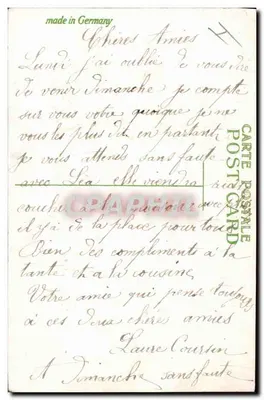 made in Germany
Chères Amies
Lundi j'ai oublié de vous dire
de venir dimanche je compte
sur vous votre quoique je ne
vous les plus dit en partant
je vous attends sans faute
avec Léa elle viendra
couche à la
il y à de la place pour tous
Bien des compliments à la
tante et a la cousine
Votre amie qui pense toujours
à ces deux chère amies
Laure Coursin
A Dimanche sans faute
CARTE POSTALE
POST CARD